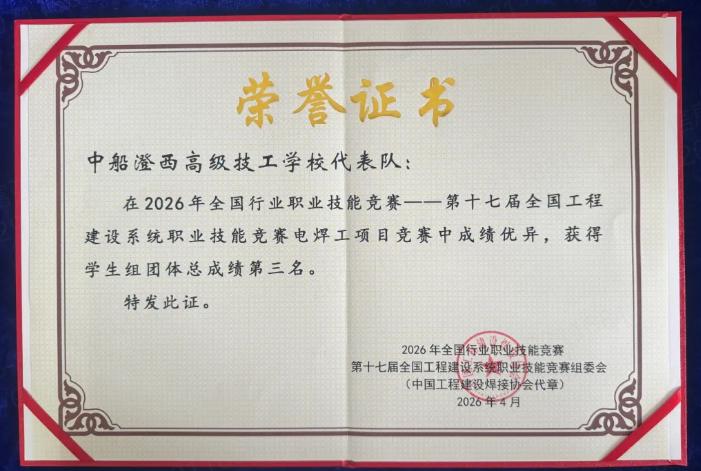 荣誉证书
中船澄西高级技工学校代表队：
在2026年全国行业职业技能竞赛——第十七届全国工程
建设系统职业技能竞赛电焊工项目竞赛中成绩优异，获得
学生组团体总成绩第三名。
特发此证。
2026年全国行业职业技能竞赛
第十七届全国工程建设系统职业技能竞赛组委会
（中国工程建设焊接协会代章）
2026年4月